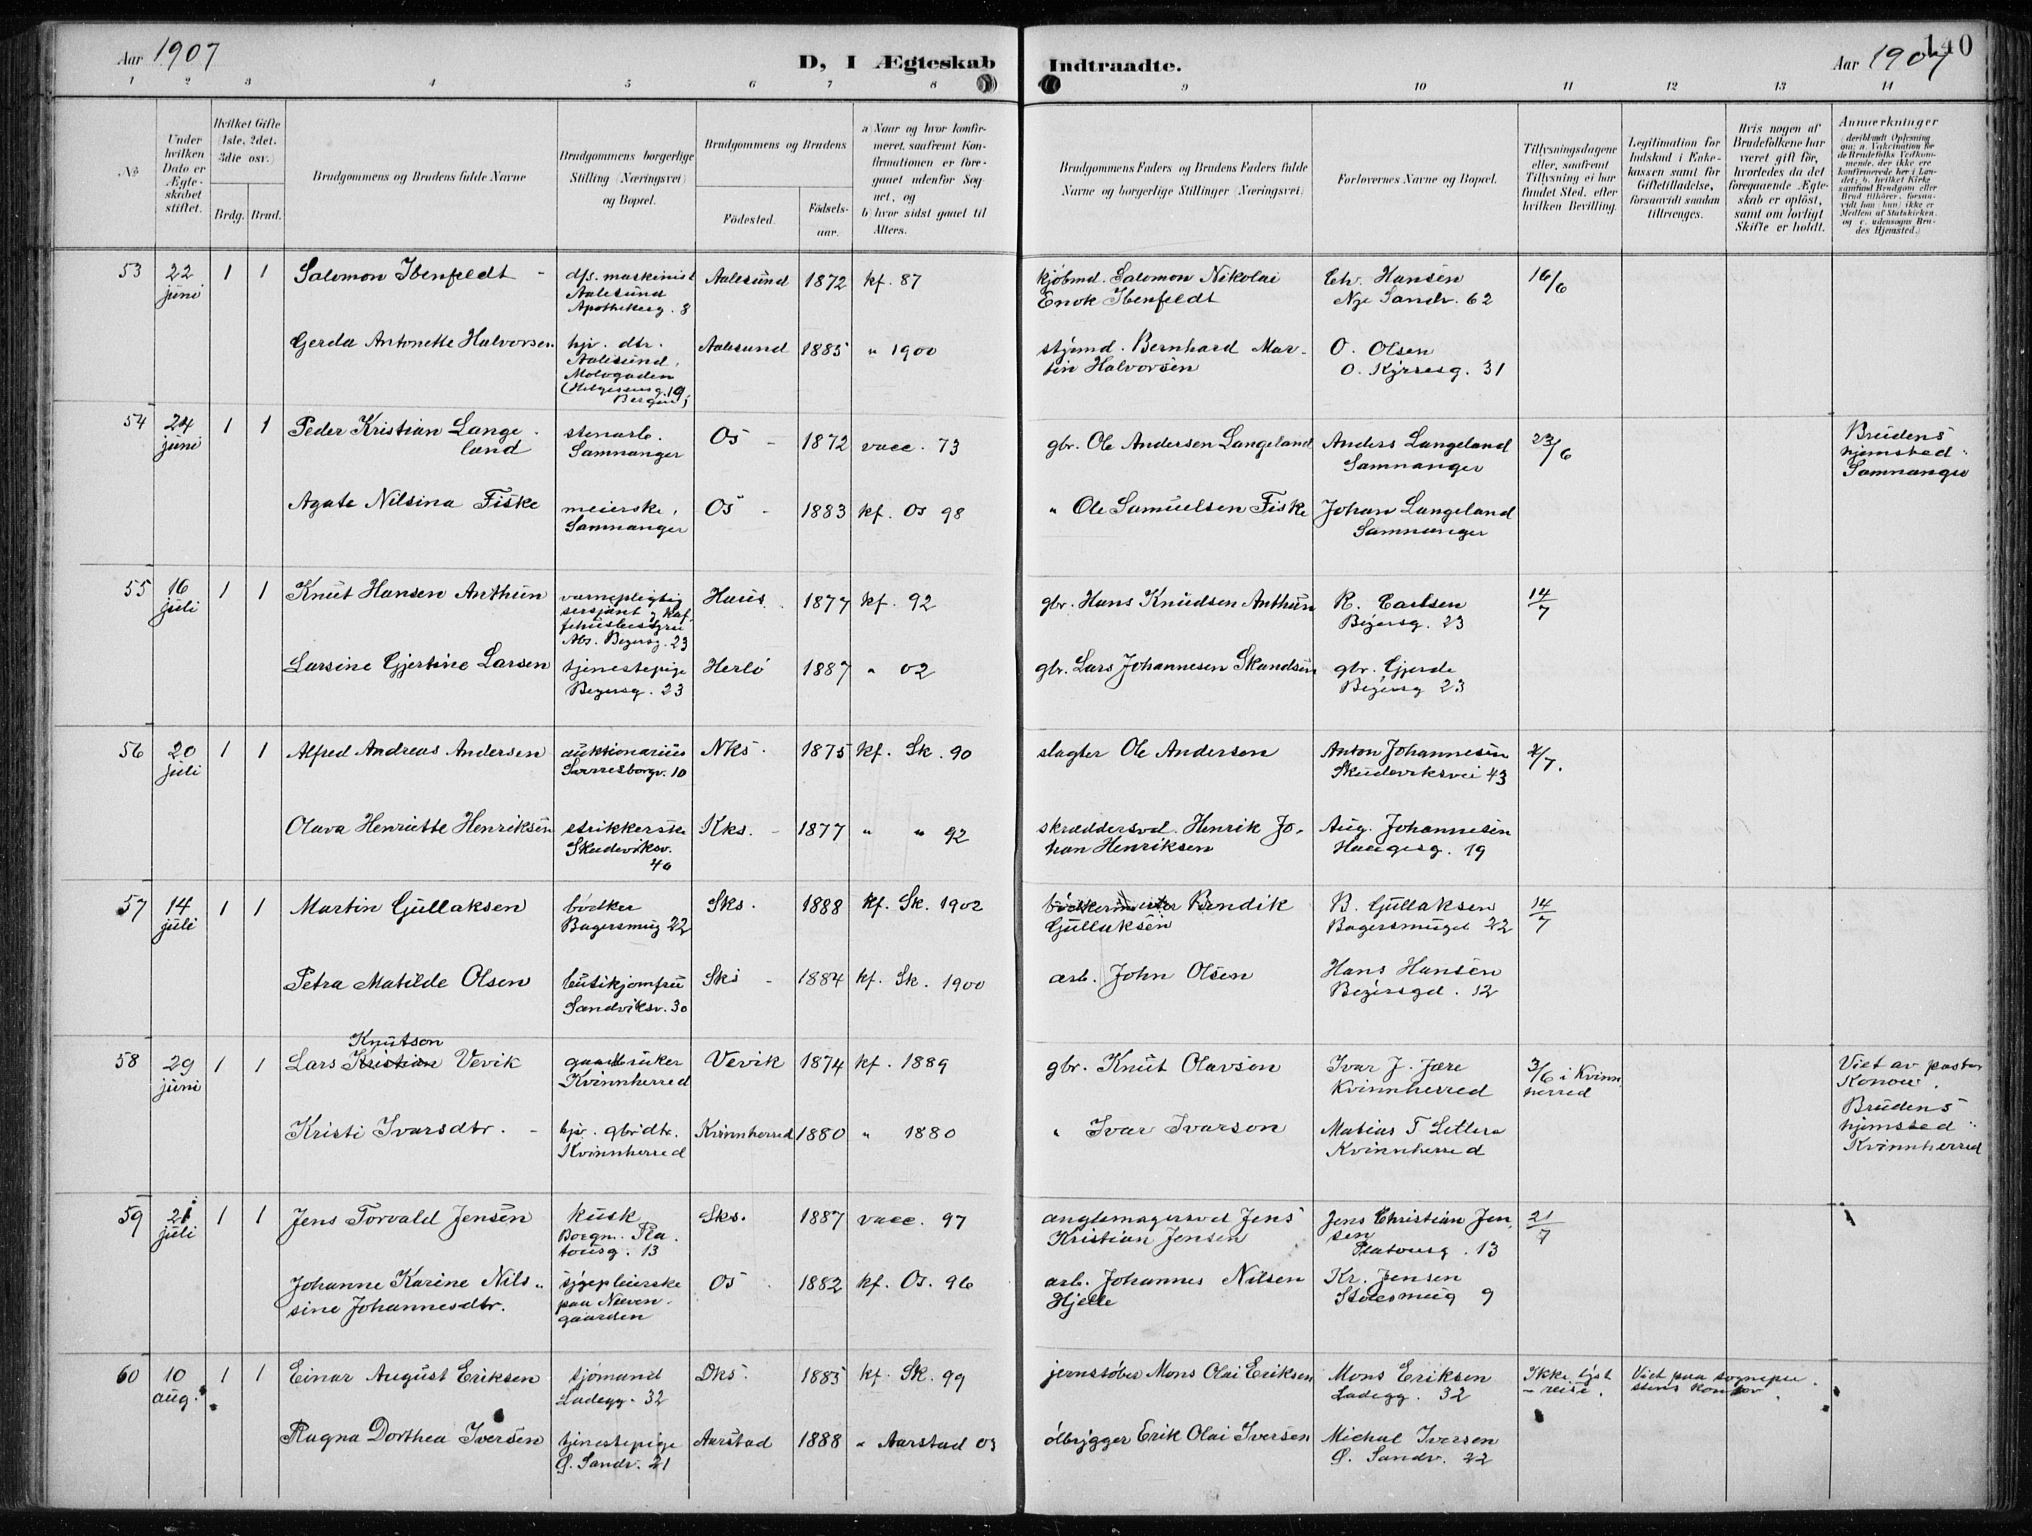 Aar 1907
D, I Ægteskab
Indtraadte.
Aar 1907
140
1 2 3 4 5 6 7 8 9 10 11 12 13 14
No
Under hvilken Dato er Ægteskabet stiftet.
Hvilket Gifte (1ste, 2det, 3die osv.)
Brdg. Brud.
Brudgommens og Brudens fulde Navne
Brudgommens borgerlige Stilling (Næringsvei) og Bopæl.
Brudgommens og Brudens
Födested.
Födsels-aar.
a) Naar og hvor konfirmeret, saafremt Konfirmationen er foregaaet udenfor Sognet, og
b) hvor sidst gaaet til Alters.
Brudgommens Faders og Brudens Faders fulde Navne og borgerlige Stillinger (Næringsvei).
Forlovernes Navne og Bopæl.
Tillysningsdagene eller, saafremt Tillysning ei har fundet Sted, efter hvilken Bevilling.
Legitimation for Indskud i Enkekassen samt for Giftetilladelse, forsaavidt saadan tiltrænges.
Hvis nogen af Brudefolkene har været gift för, hvorledes da det foregaaende Ægteskab er oplöst, samt om lovligt Skifte er holdt.
Anmerkninger
(deriblandt Oplysning om: a. Vakcination for de Brudefolks Vedkommende, der ikke ere konfirmerede her i Landet; b. hvilket Kirkesamfund Brudgom eller Brud tilhörer, forsaavidt han (hun) ikke er Medlem af Statskirken, og c. udensogns Brudes Hjemsted.)
53 22 juni 1 1 Salomon Ibenfeldt - d/s. maskinist Aalesund Apothekerg. 8 Aalesund 1872 kf. 87 kjøbmd. Salomon Nikolai Enok Ibenfeldt Chr. Hansen Nye Sandv. 62 16/6
Gerda Antonette Halvorsen hjv. dtr. Aalesund, Mologaden (Helgesensg. 19 Bergen) Aalesund 1885 " 1900 stjmd. Bernhard Martin Halvorsen O. Olsen O. Kjrresg. 31
54 24 juni 1 1 Peder Kristian Langeland stenarb. Samnanger Os - 1872 vacc. 73 gbr. Ole Andersen Langeland Anders Langeland Samnanger 23/6 Brudens hjemsted: Samnanger
Agate Nilsina Fiske meierske, Samnanger Os - 1883 kf. Os 98 " Ole Samuelsen Fiske Johan Langeland Samnanger
55 16 juli 1 1 Knut Hansen Anthun varnepligtig sersjant, Kaffehusbestyrer Abs. Beyersg. 23 Haus 1877 kf. 92 gbr. Hans Knudsen Anthun R. Carlsen Beyersg. 23 14/7
Larsine Gjertine Larsen tjenestepige Beyersg. 23 Herlö 1887 " 02 gbr. Lars Johannesen Skandsen gbr. Gjerde Beyersg 23
56 20 juli 1 1 Alfred Andreas Andersen auktionarius Sverresborgv. 10 Nks. 1875 kf. Sk. 90 slagter Ole Andersen Anton Johannesen Skudeviksvei 43 /7.
Olava Henriette Henriksen strikkerske Skudeviksv. 40 Kks. - 1877 " " 92 skræddersvd. Henrik Johan Henriksen Aug. Johannesen Haugesg. 19
57 14 juli 1 1 Martin Gullaksen bødker Bagersmug 22 Sks. 1888 kf. Sk. 1902 bødkermester Bendik Gullaksen B. Gullaksen Bagersmuget 22 14/7
Petra Matilde Olsen butikjomfru Sandviksv. 30 Sks - 1884 kf. Sk. 1900 arb. John Olsen Hans Hansen Beyersgd. 12
58 29 juni 1 1 Lars Kristian Knutson Vevik gaardbruker Kvinnherred Vevik 1874 kf. 1889 gbr. Knut Olavson Ivar J. Jære Kvinnherred 3/6 i Kvinnherred Viet av pastor Konow.
Kristi Ivarsdtr. - hjv. gbr.dtr. Kvinnherred Kvinnherred 1880 " 1880 " Ivar Ivarson Matias T Kvinnherred Brudens hjemsted: Kvinnherred
59 21 juli 1 1 Jens Torvald Jensen kusk Borgm. Platousg. 13 Sks. 1887 vacc. 97 anglemagersvd Jens Kristian Jensen Jens Christian Jensen Platousg. 13 21/7
Johanne Karine Nilssine Johannesdtr. sygepleierske paa Neevengaarden Os 1882 kf. Os. 96 arb. Johannes Nilsen Hjelle Kr. Jensen Stolesmug 9
60 10 aug. 1 1 Einar August Eriksen sjømand Ladegg. 32 Dks. 1885 kf. Sk. 99 jernstøber Mons Olai Eriksen Mons Eriksen Ladegg. 32 Ikke lyst - reise. Viet paa sogneprestens kontor.
Ragna Dorthea Iversen tjenestepige Ø. Sandv. 21 Aarstad 1888 " Aarstad 03 ölbrygger Erik Olai Iversen Michal Iversen Ø. Sandv. 22